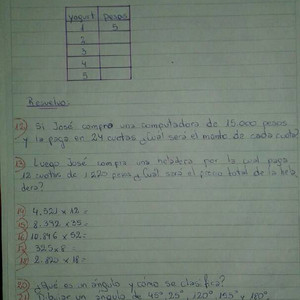 Yogurt Pesos
1 5
2
3
4
5
Resuelvo:
12) Si José compra una computadora de 15.000 pesos
y la paga en 24 cuotas ¿Cuál será el monto de cada cuota?
13) Luego José compra una heladera por la cual paga
12 cuotas de 1.220 pesos ¿Cuál será el precio total de la hela
dera?
14) 4.521 x 12 =
15) 8.392 x 35 =
16) 10.846 x 52 =
17) 325 x 8 =
18) 2.820 x 18 =
20) ¿Qué es un ángulo y cómo se clasifica?
21) Dibujar un ángulo de 45°, 25°, 120°, 155° y 180°.